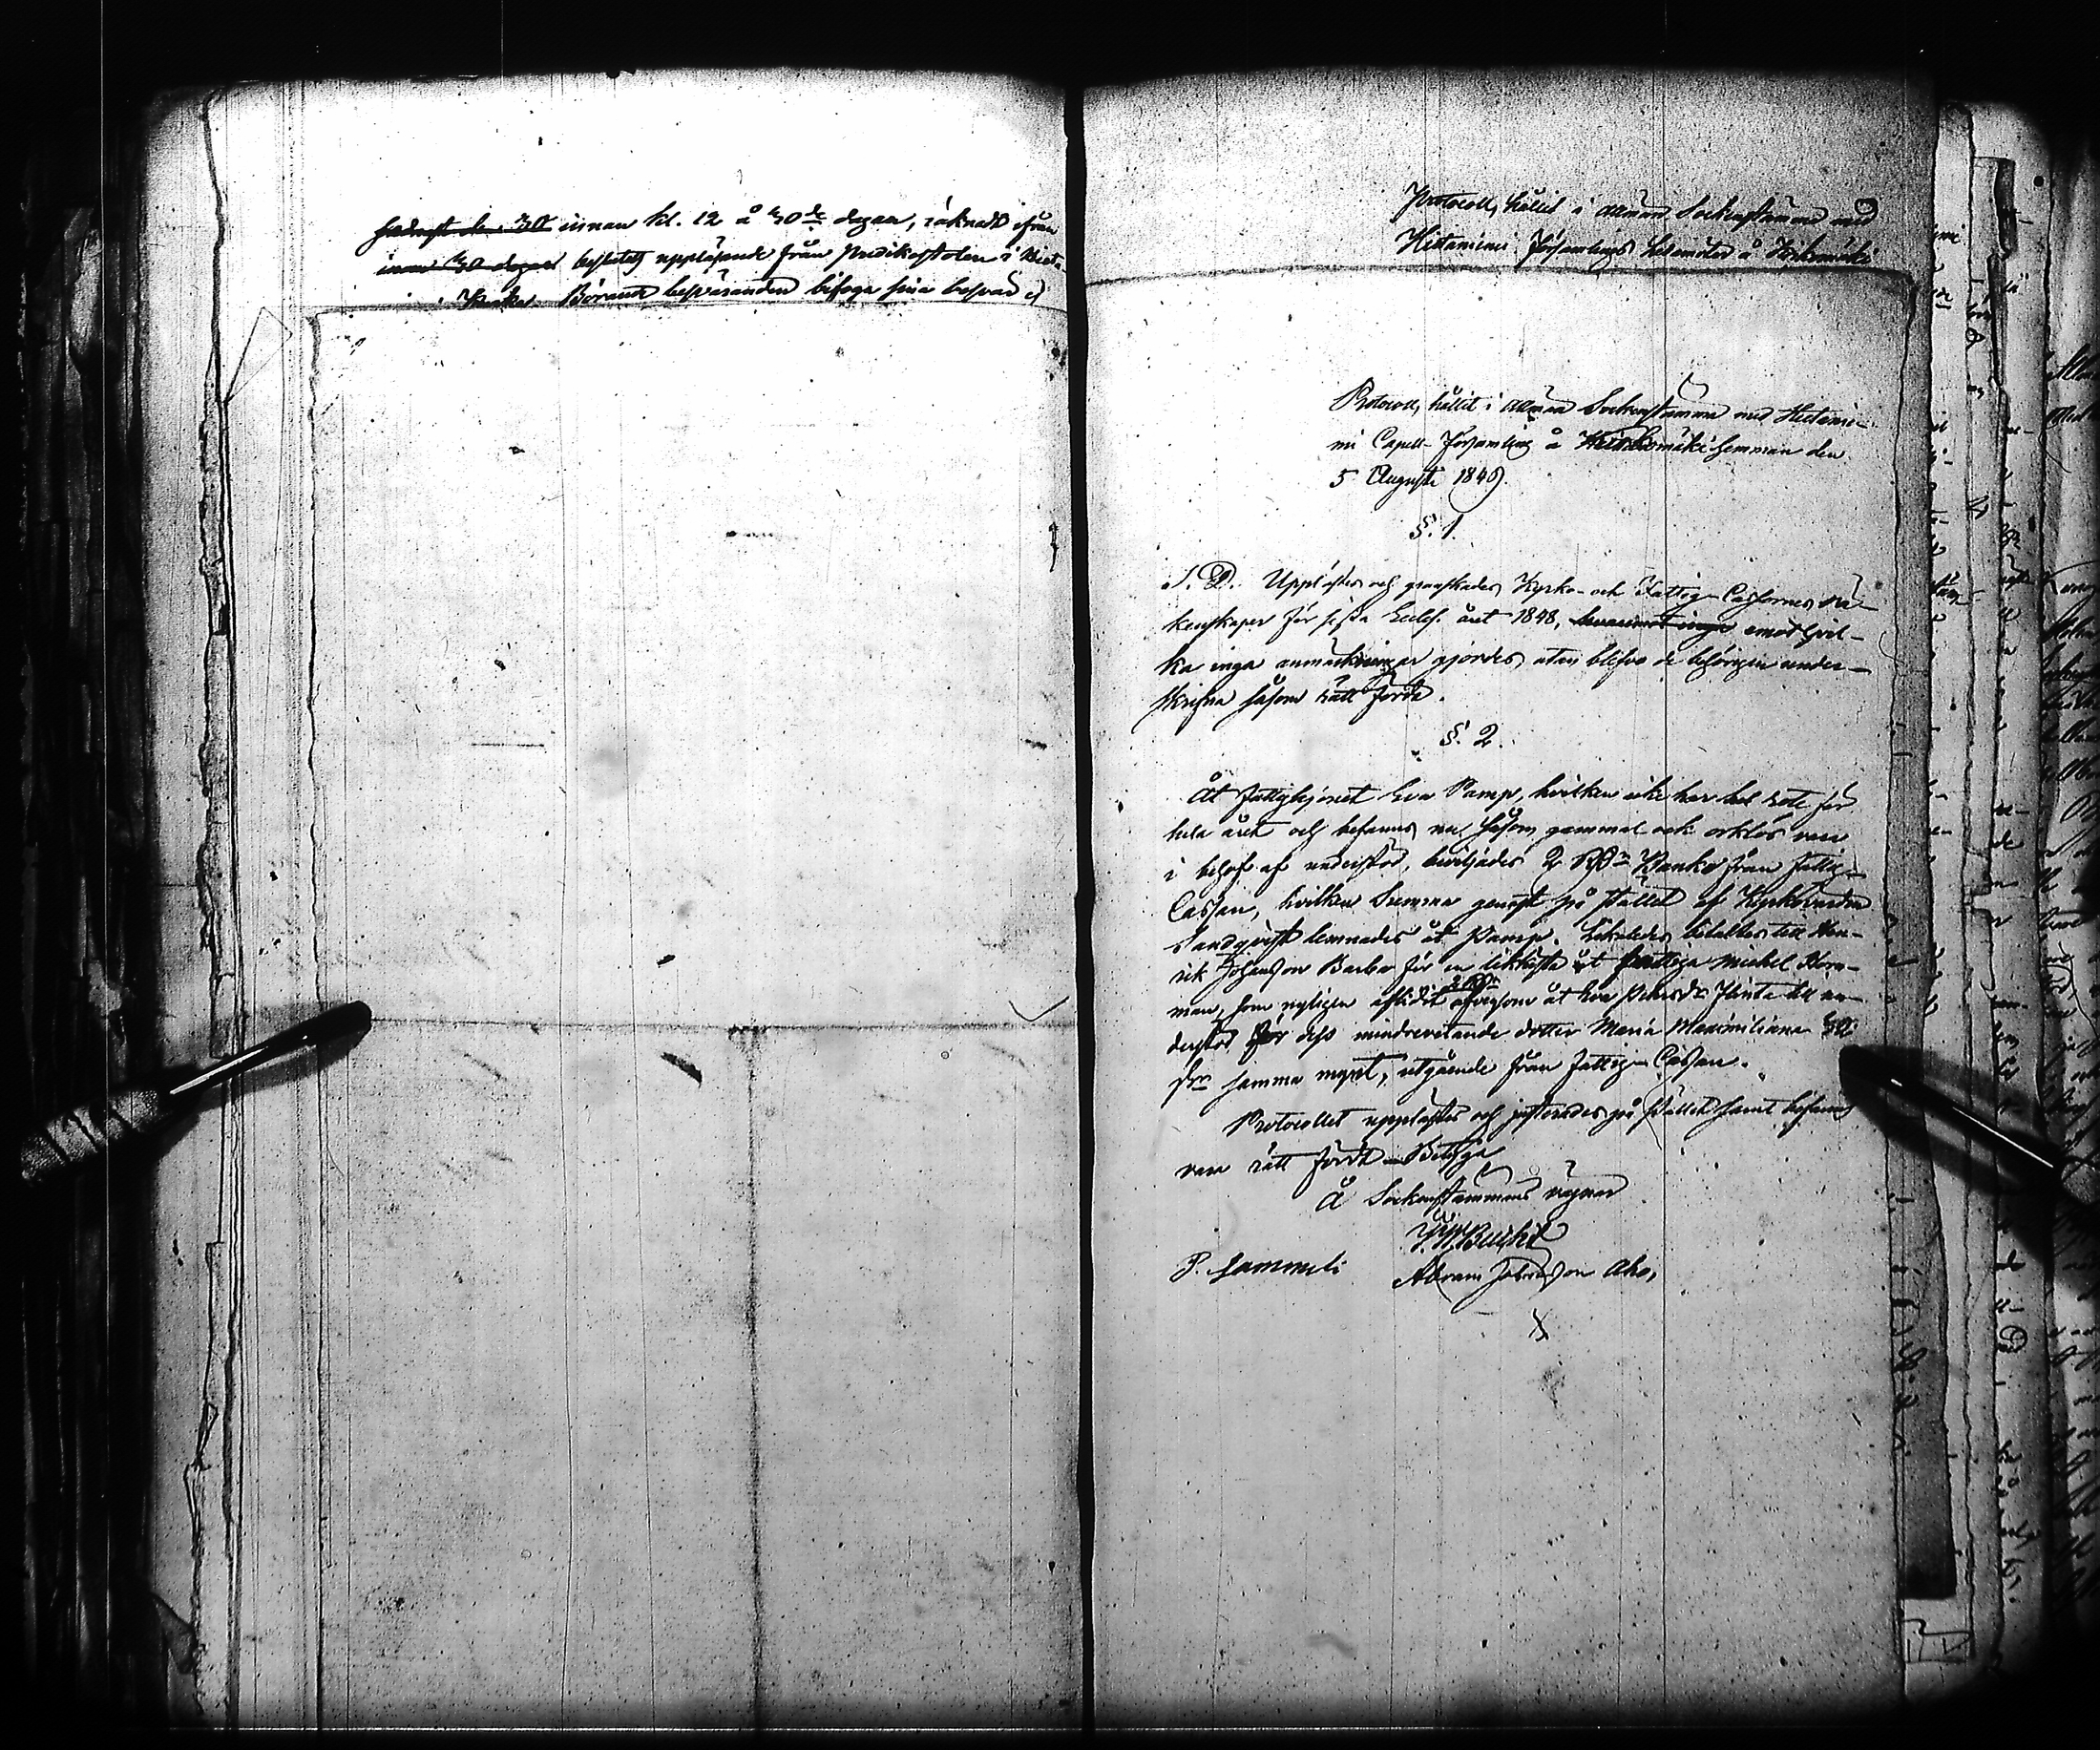 innan kl. 12 å 30de dagen, räknadt ifrån
beslutets uppläsande från Predikostolen i Hieta-
Kyrka. Börande besväranden bifoga sina besvär
Protocoll, hållit i allmän Sockenstämma med
Hietaniemi Församlings Ledamöter å
Protocoll, hållit i allmän Sockenstämma med Hietanie-
mi Capell-Församling å hemman den
5 Augusti 1849.
§. 1.
S. D. Upplästes och granskades Kyrko- och Fattig-Cassornes Rä-
kenskaper för sista Eccles. året 1848, emot hvil-
ka inga anmärkningar gjordes, utan blefvo de behörigen under-
skrifna såsom rätt förda.
§. 2.
Åt fattighjonet Eva Pamp, hvilken icke har hel rote för
hela året och befanns nu såsom gammal och orklös vara
i behof af understöd, beviljades 2 RDr Banko från Fattig-
Cassan, hvilken Summa genast på stället af Kyrkovärden
Sandqvist lemnades åt Pamp. Likaledes till Hen-
rik Johansson Barba för en likkista åt fattiga Michel Horn-
man, som nyligen aflidit, äfvensom åt Eva Persdr Flinta till un-
derstöd för dess mindrevetande dotter Maria Maximiliana 32
samma mynt, utgående från Fattig-Cassan.
Protocollet upplästes och justerades på stället samt befanns
vara rätt fördt - Betyga
Å Sockenstämmans vägnar
P. Lammeli Abram Johansson Aho,